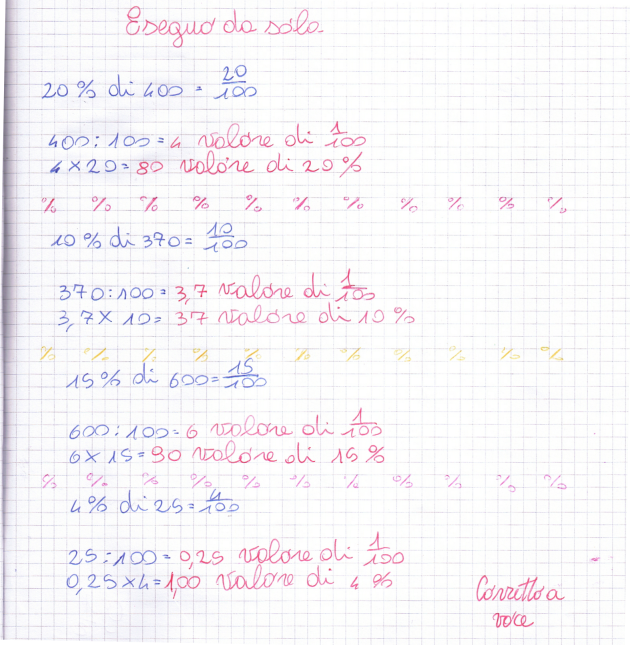 Eseguo da sola
20 % di 400 = 20/100
400 : 100 = 4 valore di 1/100
4 × 20 = 80 valore di 20 %
% % % % % % % % % % %
10 % di 370 = 10/100
370 : 100 = 3,7 valore di 1/100
3,7 × 10 = 37 valore di 10 %
% % % % % % % % % % %
15 % di 600 = 15/100
600 : 100 = 6 valore di 1/100
6 × 15 = 90 valore di 15 %
% % % % % % % % % % %
4 % di 25 = 4/100
25 : 100 = 0,25 valore di 1/100
0,25 × 4 = 1,00 valore di 4 %
Corretto a
voce